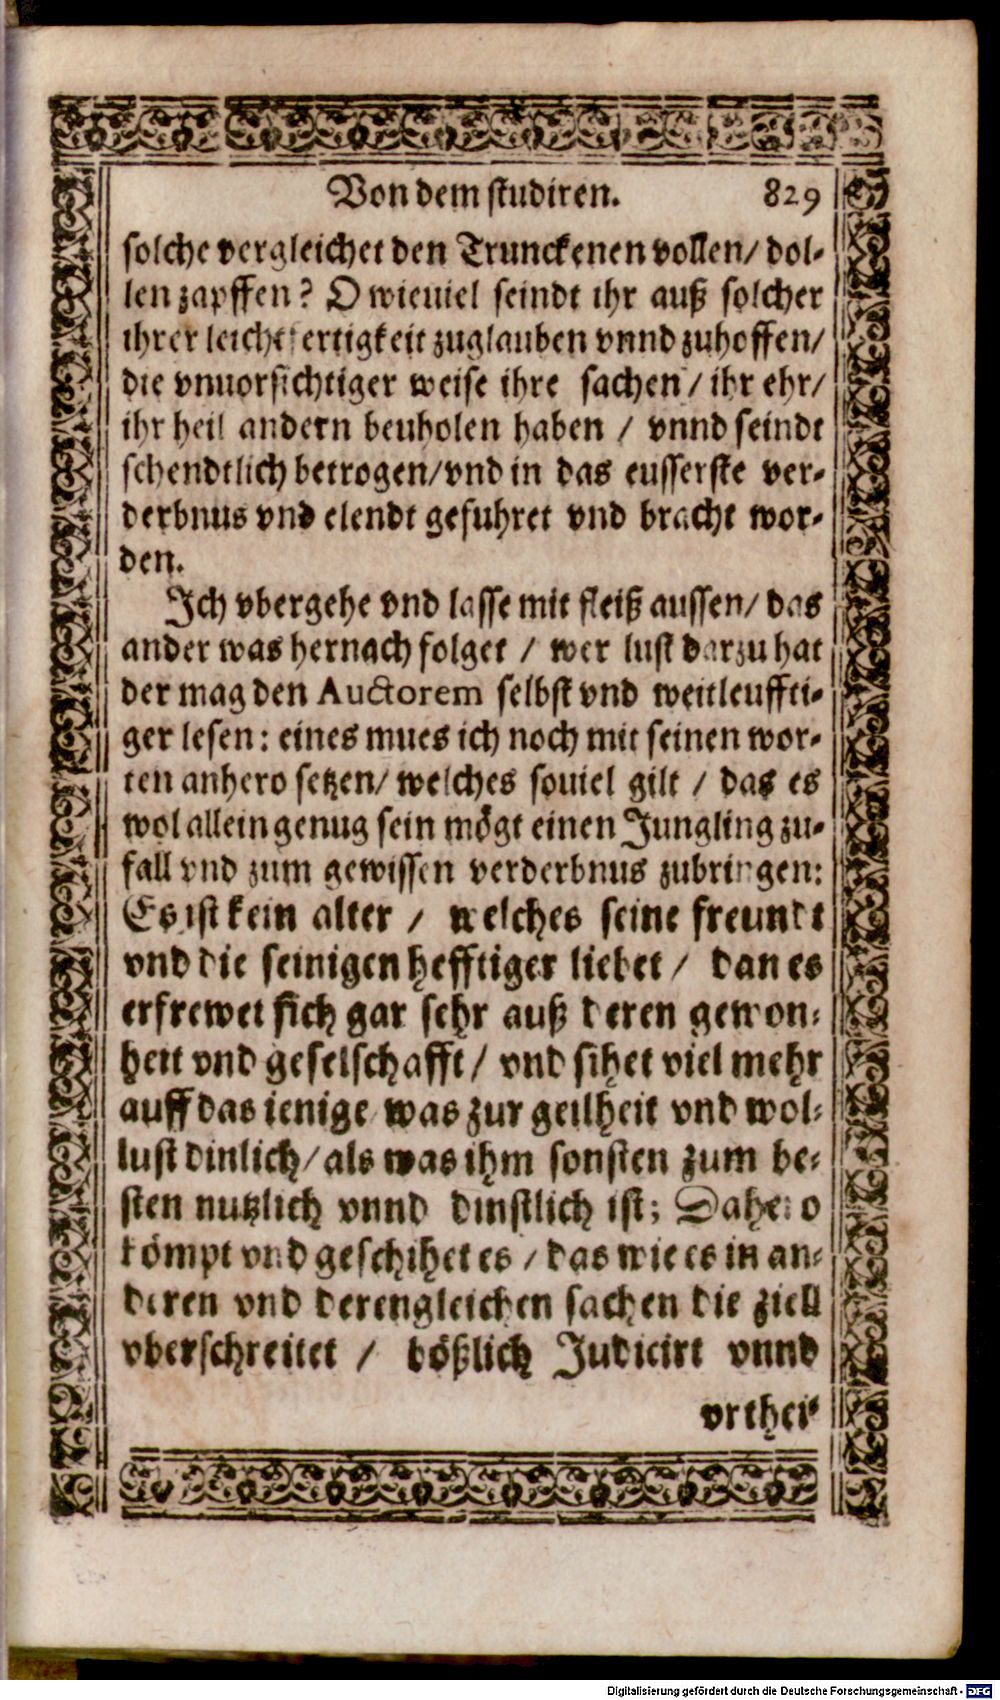 Von dem studiren. 829
solche vergleichet den Trunckenen vollen/ dol-
len zapffen? O wieuiel seindt ihr auß solcher
ihrer leichtfertigkeit zuglauben vnnd zuhoffen/
die vnuorsichtiger weise ihre sachen/ ihr ehr/
ihr heil andern beuholen haben / vnnd seindt
schendtlich betrogen/vnd in das eusserste ver-
derbnus vnd elendt gefuhret vnd bracht wor-
den.
Ich vbergehe vnd lasse mit fleiß aussen/ das
ander was hernach folget / wer lust darzu hat
der mag den Auctorem selbst vnd weitleuffti-
ger lesen: eines mues ich noch mit seinen wor-
ten anhero setzen/ welches souiel gilt / das es
wol allein genug sein mögt einen Jungling zu-
fall vnd zum gewissen verderbnus zubringen:
Es ist kein alter / welches seine freundt
vnd die seinigen hefftiger liebet / dan es
erfrewet sich gar sehr auß deren gewon-
heit vnd geselschafft / vnd sihet viel mehr
auff das ienige was zur geilheit vnd wol-
lust dinlich/ als was ihm sonsten zum be-
sten nutzlich vnnd dinstlich ist; Dahero
kömpt vnd geschihet es / das wie es in an-
deren vnd derengleichen sachen die ziell
vberschreitet / bößlich Judicirt vnnd
vrthei-
Digitalisierung gefördert durch die Deutsche Forschungsgemeinschaft - DFG